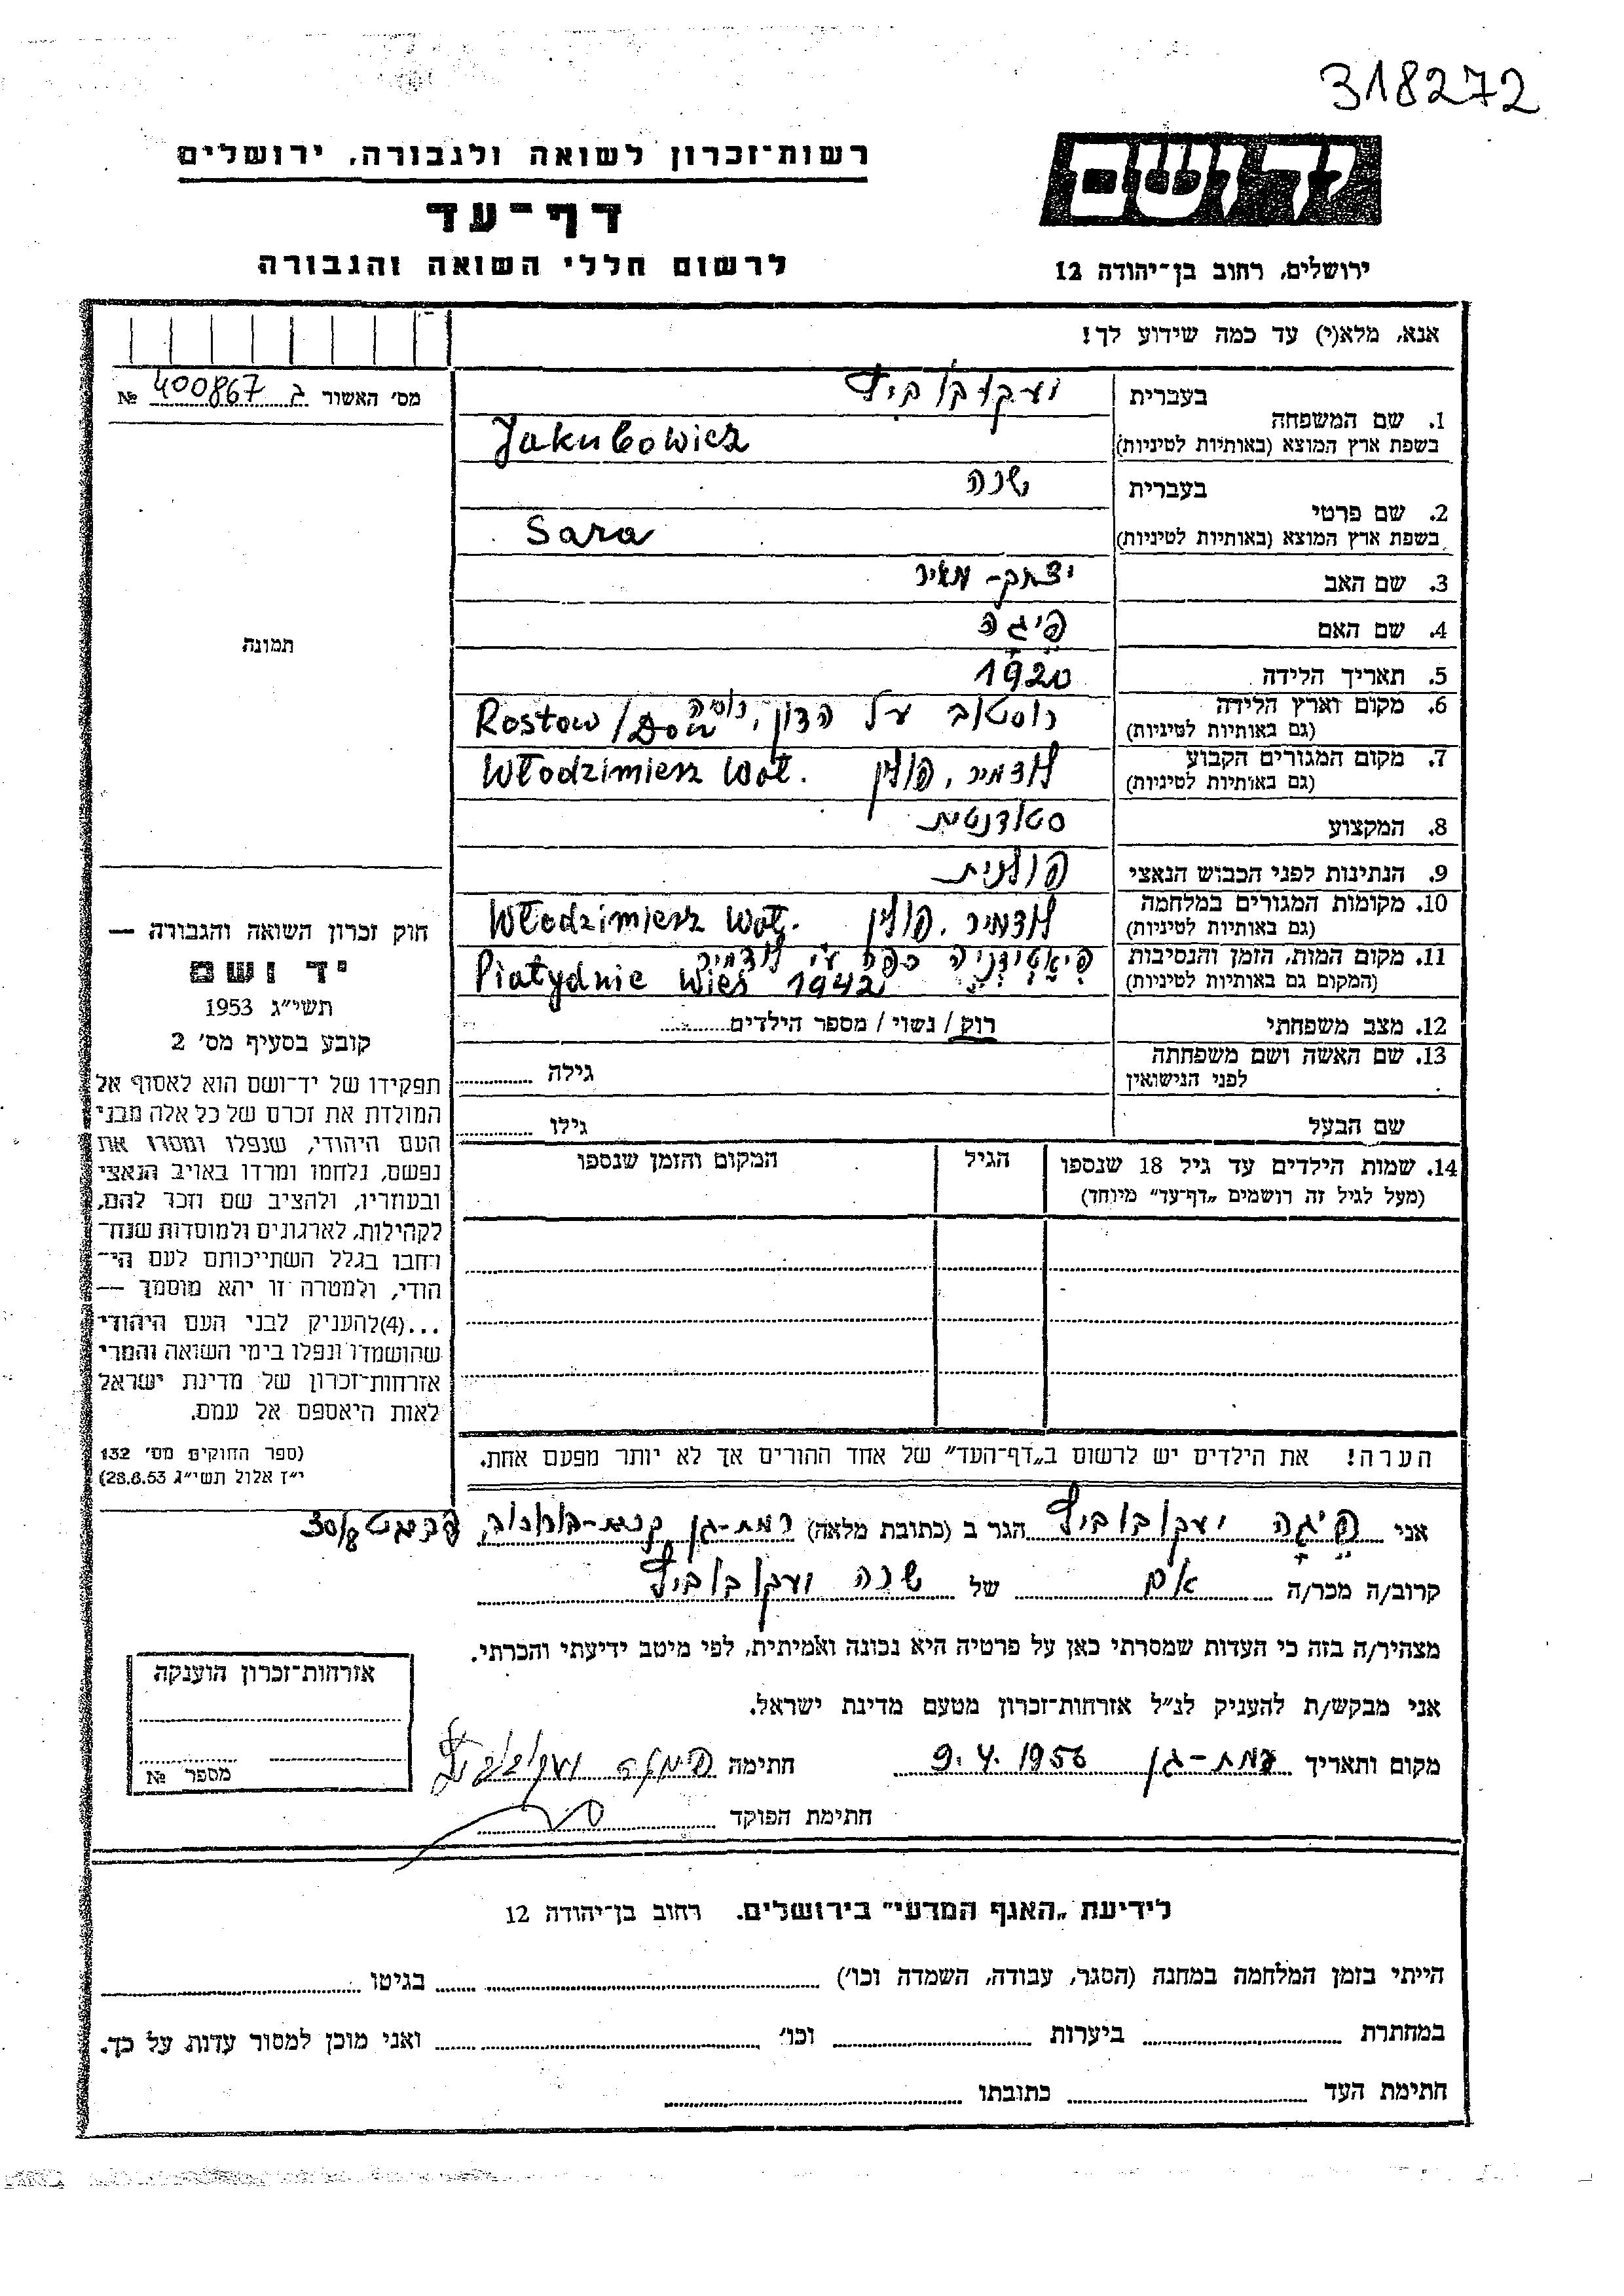 318272
רשות־זכרון לשואה ולגבורה, ירושלים
דף־עד
לרשום חללי השואה והגבורה
יד ושם
ירושלים, רחוב בן־יהודה 12
אנא, מלא(י) עד כמה שידוע לך!
מס' האשור ג 400867 №
תמונה
1. שם המשפחה בעברית יעקובוביץ
בשפת ארץ המוצא (באותיות לטיניות) Jakubowicz
2. שם פרטי בעברית שרה
בשפת ארץ המוצא (באותיות לטיניות) Sara
3. שם האב יצחק-מאיר
4. שם האם פייגה
5. תאריך הלידה 1920
6. מקום וארץ הלידה (גם באותיות לטיניות) רוסטוב על הדון, רוסיה Rostow/Don
7. מקום המגורים הקבוע (גם באותיות לטיניות) לודמיר, פולין Włodzimierz Woł.
8. המקצוע סטודנטית
9. הנתינות לפני הכבוש הנאצי פולנית
10. מקומות המגורים במלחמה (גם באותיות לטיניות) לודמיר, פולין Włodzimierz Woł.
11. מקום המות, הזמן והנסיבות (המקום גם באותיות לטיניות) פיאטידניה כפר ע"י לודמיר Piatydnie Wieś 1942
12. מצב משפחתי רווק / נשוי / מספר הילדים
13. שם האשה ושם משפחתה לפני הנישואין גילה
שם הבעל גילו
14. שמות הילדים עד גיל 18 שנספו (מעל לגיל זה רושמים „דף־עד" מיוחד) הגיל המקום והזמן שנספו
הערה! את הילדים יש לרשום ב„דף־העד" של אחד ההורים אך לא יותר מפעם אחת.
חוק זכרון השואה והגבורה —
יד ושם
תשי"ג 1953
קובע בסעיף מס' 2
תפקידו של יד־ושם הוא לאסוף אל
המולדת את זכרם של כל אלה מבני
העם היהודי, שנפלו ומסרו את
נפשם, נלחמו ומרדו באויב הנאצי
ובעוזריו, ולהציב שם וזכר להם,
לקהילות, לארגונים ולמוסדות שנח־
רחבו בגלל השתייכותם לעם הי־
הודי, ולמטרה זו יהא מוסמך —
...(4)להעניק לבני העם היהודי
שהושמדו ונפלו בימי השואה והמרי
אזרחות־זכרון של מדינת ישראל
לאות היאספם אל עמם.
(ספר החוקים מס' 132
י"ז אלול תשי"ג 28.8.53)
אני פייגה יעקובוביץ הגר ב (כתובת מלאה) רמת-גן קרית-בורוכוב,
קרוב/ה מכר/ה אם של שרה יעקובוביץ
מצהיר/ה בזה כי העדות שמסרתי כאן על פרטיה היא נכונה ואמיתית, לפי מיטב ידיעתי והכרתי.
אני מבקש/ת להעניק לנ"ל אזרחות־זכרון מטעם מדינת ישראל.
מקום ותאריך רמת-גן 9.4.1956 חתימה פייגה יעקובוביץ
חתימת הפוקד
אזרחות־זכרון הוענקה
מספר №
לידיעת „האגף המדעי" בירושלים. רחוב בן־יהודה 12
הייתי בזמן המלחמה במחנה (הסגר, עבודה, השמדה וכו') בגיטו
במחתרת ביערות וכו' ואני מוכן למסור עדות על כך.
חתימת העד כתובתו